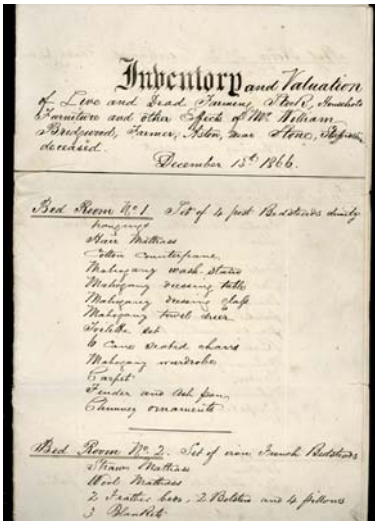 Inventory and Valuation
of Live and Dead Farming Stock, Household
Furniture and other Effects of Mr William
Bridgwood, Farmer, Aston, near Stone,
deceased.
December 13th 1866.
Bed Room No 1. Set of 4 post Bedsteads dimity
hangings
Hair Mattrass
Cotton Counterpane
Mahogany wash stand
Mahogany dressing table
Mahogany dressing glass
Mahogany towel drier
Toilette set
6 Cane Seated chairs
Mahogany wardrobe
Carpet
Fender and Ash pan
Chimney ornaments
Bed Room No. 2. Set of iron French Bedsteads
Straw Mattrass
Wool Mattrass
2 Feather beds, 2 Bolsters and 4 pillows
3 Blankets